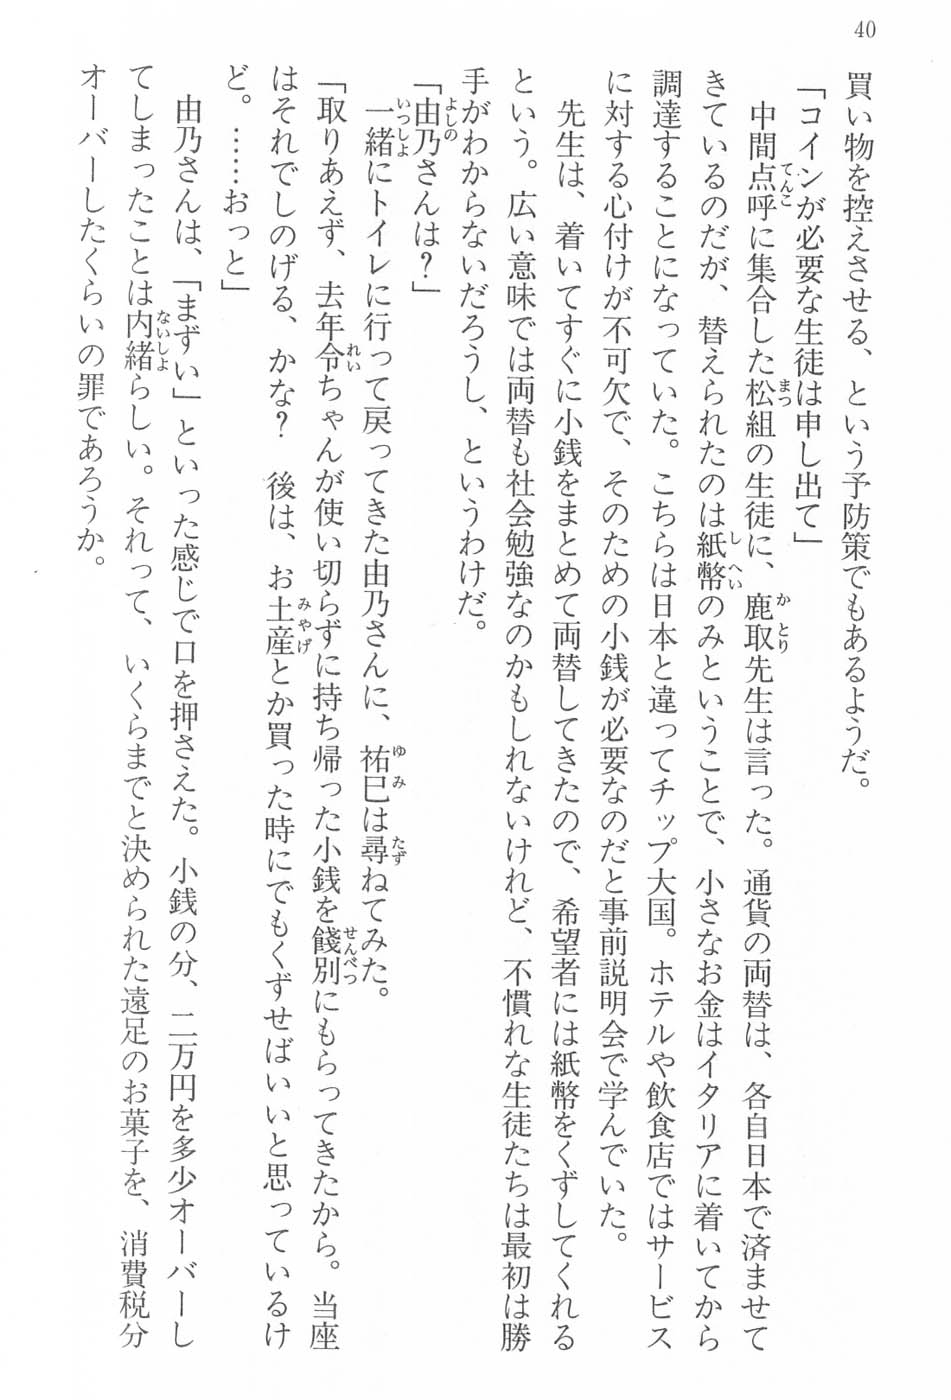 40
買い物を控えさせる、という予防策でもあるようだ。
「コインが必要な生徒は申し出て」
中間点呼に集合した松組の生徒に、鹿取先生は言った。通貨の両替は、各自日本で済ませて
きているのだが、替えられたのは紙幣のみということで、小さなお金はイタリアに着いてから
調達することになっていた。こちらは日本と違ってチップ大国。ホテルや飲食店ではサービス
に対する心付けが不可欠で、そのための小銭が必要なのだと事前説明会で学んでいた。
先生は、着いてすぐに小銭をまとめて両替してきたので、希望者には紙幣をくずしてくれる
という。広い意味では両替も社会勉強なのかもしれないけれど、不慣れな生徒たちは最初は勝
手がわからないだろうし、というわけだ。
「由乃さんは？」
一緒にトイレに行って戻ってきた由乃さんに、祐巳は尋ねてみた。
「取りあえず、去年令ちゃんが使い切らずに持ち帰った小銭を餞別にもらってきたから。当座
はそれでしのげる、かな？　後は、お土産とか買った時にでもくずせばいいと思っているけ
ど。……おっと」
由乃さんは、「まずい」といった感じで口を押さえた。小銭の分、二万円を多少オーバーし
てしまったことは内緒らしい。それって、いくらまでと決められた遠足のお菓子を、消費税分
オーバーしたくらいの罪であろうか。